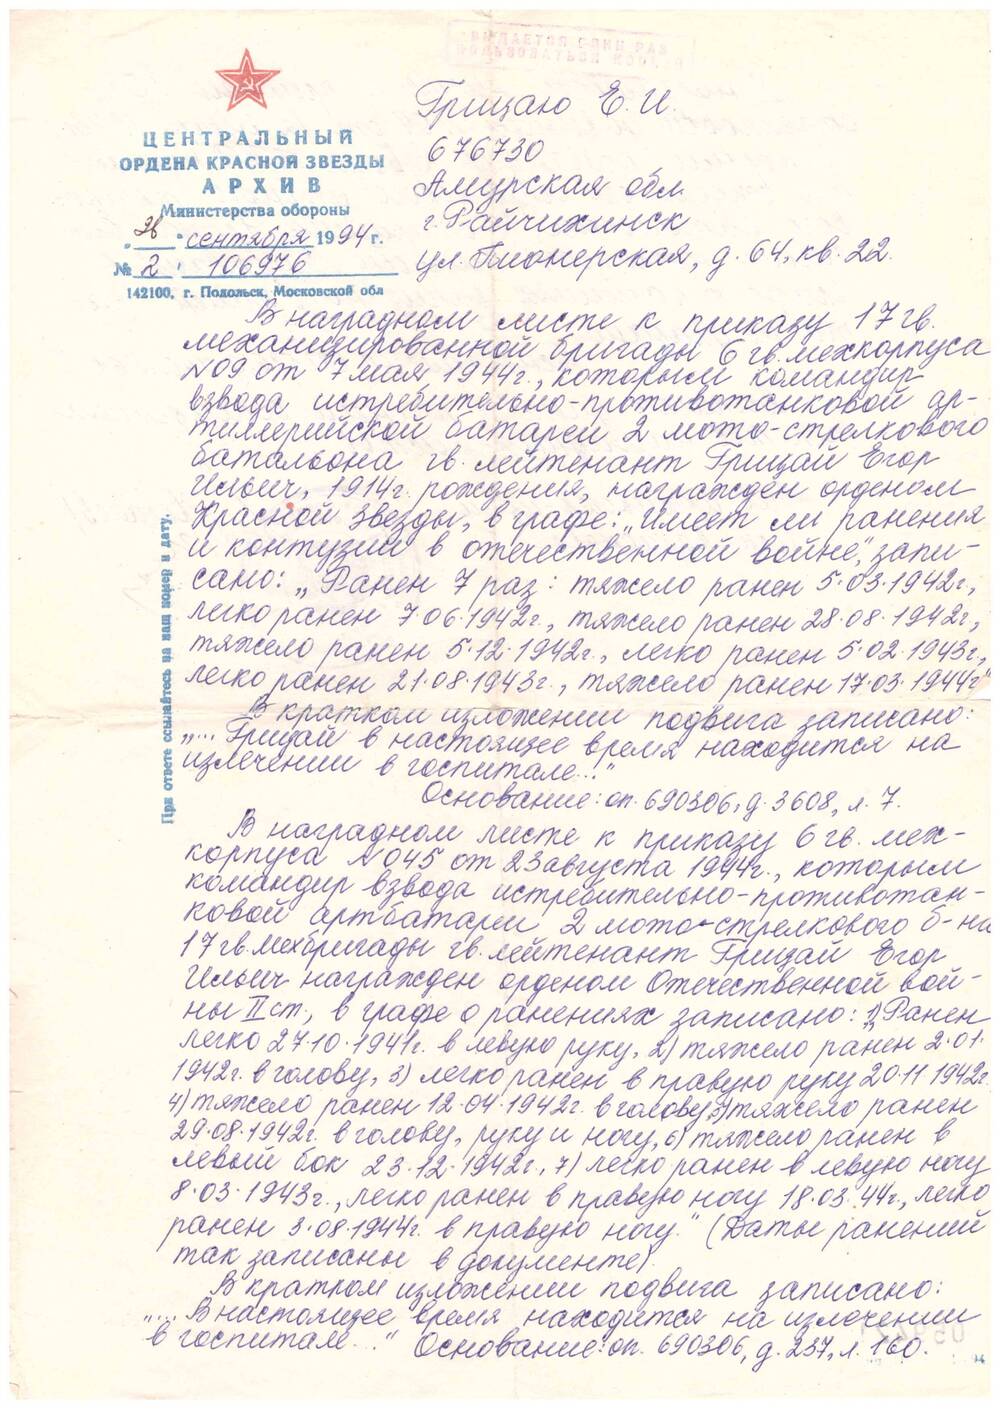 ВЫДАЕТСЯ ОДИН РАЗ
ПОЛЬЗОВАТЬСЯ КОПИЕЙ
ЦЕНТРАЛЬНЫЙ
ОРДЕНА КРАСНОЙ ЗВЕЗДЫ
АРХИВ
Министерства обороны
„26“ сентября 1994 г.
№ 2 / 106976
142100, г. Подольск, Московской обл
При ответе ссылайтесь на наш номер и дату.
Грицаю Е. И.
676730
Амурская обл
г. Райчихинск
ул. Пионерская, д. 64, кв. 22.
В наградном листе к приказу 17 гв.
механизированной бригады 6 гв. мехкорпуса
№ 09 от 7 мая 1944г., которым командир
взвода истребительно-противотанковой ар-
тиллерийской батареи 2 мото-стрелкового
батальона гв. лейтенант Грицай Егор
Ильич, 1914г. рождения, награжден орденом
Красной Звезды, в графе: „Имеет ли ранения
и контузии в отечественной войне", запи-
сано: „Ранен 7 раз: тяжело ранен 5.03.1942г.,
легко ранен 7.06.1942г., тяжело ранен 28.08.1942г.,
тяжело ранен 5.12.1942г., легко ранен 5.02.1943г.,
легко ранен 21.08.1943г., тяжело ранен 17.03.1944г."
В кратком изложении подвига записано:
„... Грицай в настоящее время находится на
излечении в госпитале..."
Основание: оп. 690306, д. 3608, л. 7.
В наградном листе к приказу 6 гв. мех-
корпуса № 045 от 23 августа 1944г., которым
командир взвода истребительно-противотан-
ковой артбатареи 2 мото-стрелкового б-на
17 гв. мехбригады гв. лейтенант Грицай Егор
Ильич награжден орденом Отечественной вой-
ны II ст., в графе о ранениях записано: „1) Ранен
легко 27.10.1941г. в левую руку, 2) тяжело ранен 2.01.
1942г. в голову, 3) легко ранен в правую руку 20.11.1942г.
4) тяжело ранен 12.04.1942г. в голову, 5) тяжело ранен
29.08.1942г. в голову, руку и ногу, 6) тяжело ранен в
левый бок 23.12.1942г., 7) легко ранен в левую ногу
8.03.1943г., легко ранен в правую ногу 18.03.44г., легко
ранен 3.08.1944г. в правую ногу." (Даты ранений
так записаны в документе).
В кратком изложении подвига записано:
„... В настоящее время находится на излечении
в госпитале..." Основание: оп. 690306, д. 237, л. 160.